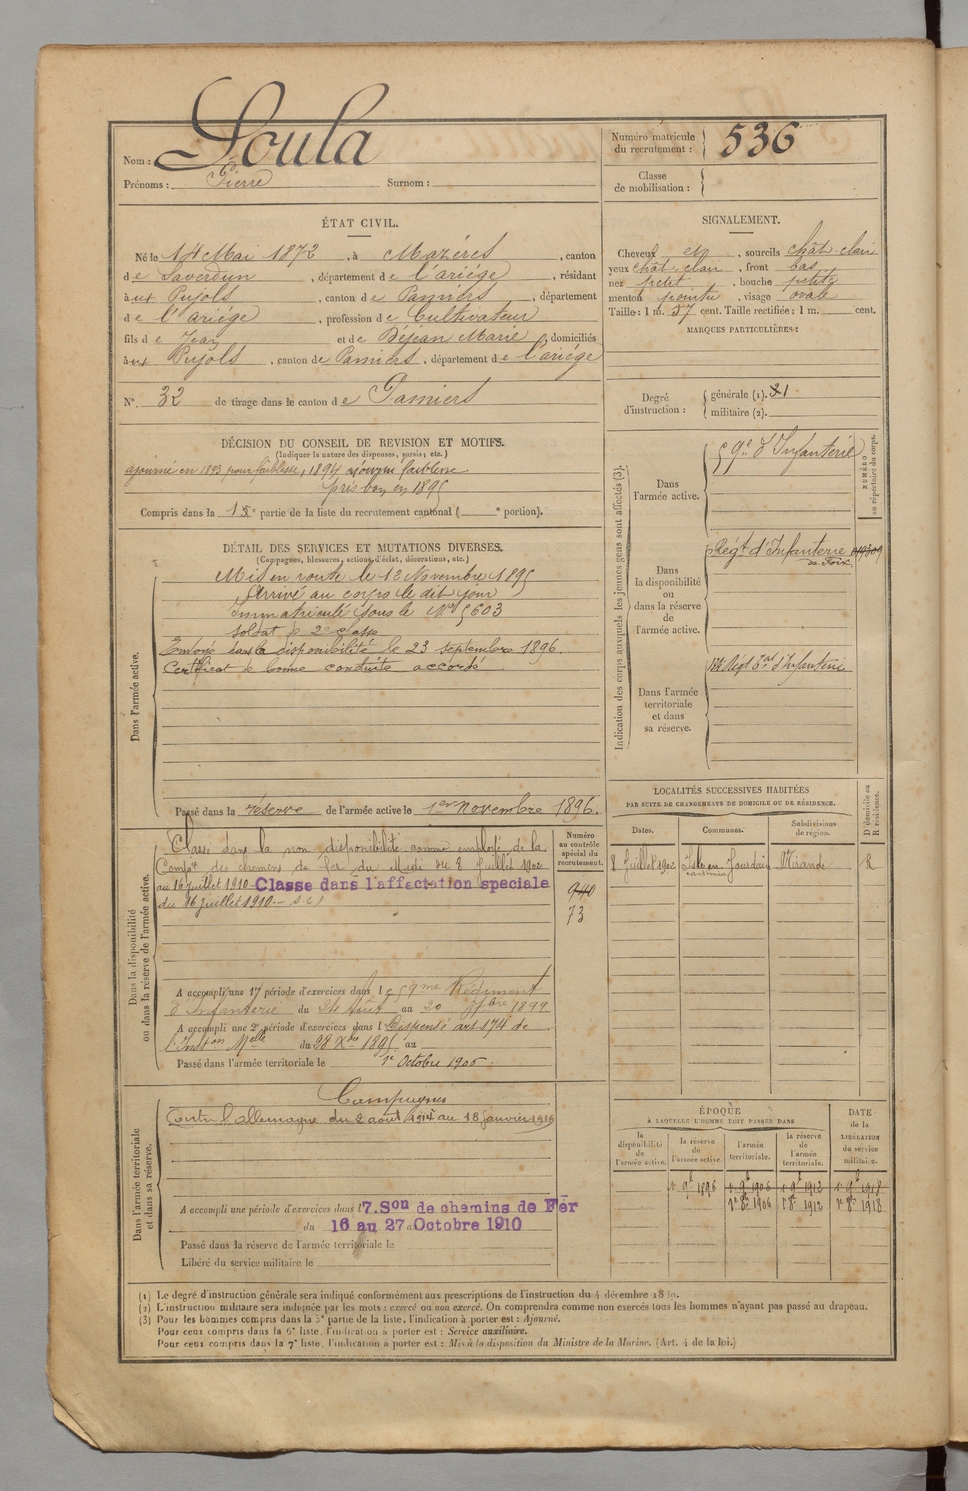 Nom : Soula
Prénoms : Pierre Surnom :
Numéro matricule du recrutement : 536
Classe de mobilisation :
ÉTAT CIVIL.
Né le 14 Mai 1872, à Mazères, canton
de Saverdun, département de l'ariège, résidant
à ux Pujols, canton de Pamiers, département
de l'ariège, profession de Cultivateur
fils de Jean et de Déjean Marie, domiciliés
à ux Pujols, canton de Pamiers, département de l'ariège
N°. 32 de tirage dans le canton de Pamiers
SIGNALEMENT.
Cheveux , sourcils chât. clair
yeux chât. clair, front bas
nez petit, bouche petite
menton pointu, visage ovale
Taille : 1 m. 57 cent. Taille rectifiée : 1 m. cent.
MARQUES PARTICULIÈRES :
Degré d'instruction : générale (1).
militaire (2).
DÉCISION DU CONSEIL DE REVISION ET MOTIFS.
(Indiquer la nature des dispenses, sursis, etc.)
ajourné en 1893 pour faiblesse, 1894 ajourné faiblesse
pris bon en 1895
Compris dans la 1re partie de la liste du recrutement cantonal ( e portion).
DÉTAIL DES SERVICES ET MUTATIONS DIVERSES.
(Campagnes, blessures, actions d'éclat, décorations, etc.)
Dans l'armée active.
Mis en route le 12 Novembre 1895
Arrivé au corps le dit jour
Immatriculé sous le N° 5603
soldat de 2e classe
Envoyé dans la disponibilité le 23 septembre 1896.
Certificat de bonne conduite accordé
Passé dans la réserve de l'armée active le 1er novembre 1896.
Indication des corps auxquels les jeunes gens sont affectés (3).
NUMÉRO au répertoire du corps.
Dans l'armée active.
59e d'Infanterie
Dans la disponibilité ou dans la réserve de l'armée active.
Régt d'Infanterie
de Foix.
Dans l'armée territoriale et dans sa réserve.
Régt Tal d'Infanterie
LOCALITÉS SUCCESSIVES HABITÉES
PAR SUITE DE CHANGEMENTS DE DOMICILE OU DE RÉSIDENCE.
Dates. Communes. Subdivisions de région. D domicile ou R résidence.
8 Juillet 1902 Isle en Jourdain Mirande R
cantonnier
Dans la disponibilité ou dans la réserve de l'armée active.
Numéro au contrôle spécial du recrutement.
Classé dans la non disponibilité comme employé de la
Compie des chemins de fer du Midi du 8 Juillet 1902
au 16 juillet 1910 Classe dans l'affectation speciale
du 16 juillet 1910
940
73
A accompli une 1re période d'exercices dans le 59me Régiment
d'Infanterie du 24 Août au 20 7bre 1899
A accompli une 2e période d'exercices dans l Dispensé art 174 de
l'Inston Melle du 28 Xbre 1895 au
Passé dans l'armée territoriale le 1er Octobre 1906
Dans l'armée territoriale et dans sa réserve.
Campagnes
Contre l'allemagne du 2 août 1914 au 18 janvier 1919
A accompli une période d'exercices dans l 7.Son de chemins de Fer
du 16 au 27 Octobre 1910
Passé dans la réserve de l'armée territoriale le
Libéré du service militaire le
ÉPOQUE
A LAQUELLE L'HOMME DOIT PASSER DANS
DATE de la LIBÉRATION du service militaire.
la disponibilité de l'armée active. la réserve de l'armée active. l'armée territoriale. la réserve de l'armée territoriale.
1er 9e 1896 1er 9e 1906 1er 9e 1912 1er 9e 1918
1er 8e 1906 1er 8e 1912 1er 8e 1918
(1) Le degré d'instruction générale sera indiqué conformément aux prescriptions de l'instruction du 4 décembre 18
(2) L'instruction militaire sera indiquée par les mots : exercé ou non exercé. On comprendra comme non exercés tous les hommes n'ayant pas passé au drapeau.
(3) Pour les hommes compris dans la 5e partie de la liste, l'indication à porter est : Ajourné.
Pour ceux compris dans la 6e liste, l'indication à porter est : Service auxiliaire.
Pour ceux compris dans la 7e liste, l'indication à porter est : Mis à la disposition du Ministre de la Marine. (Art. 4 de la loi.)